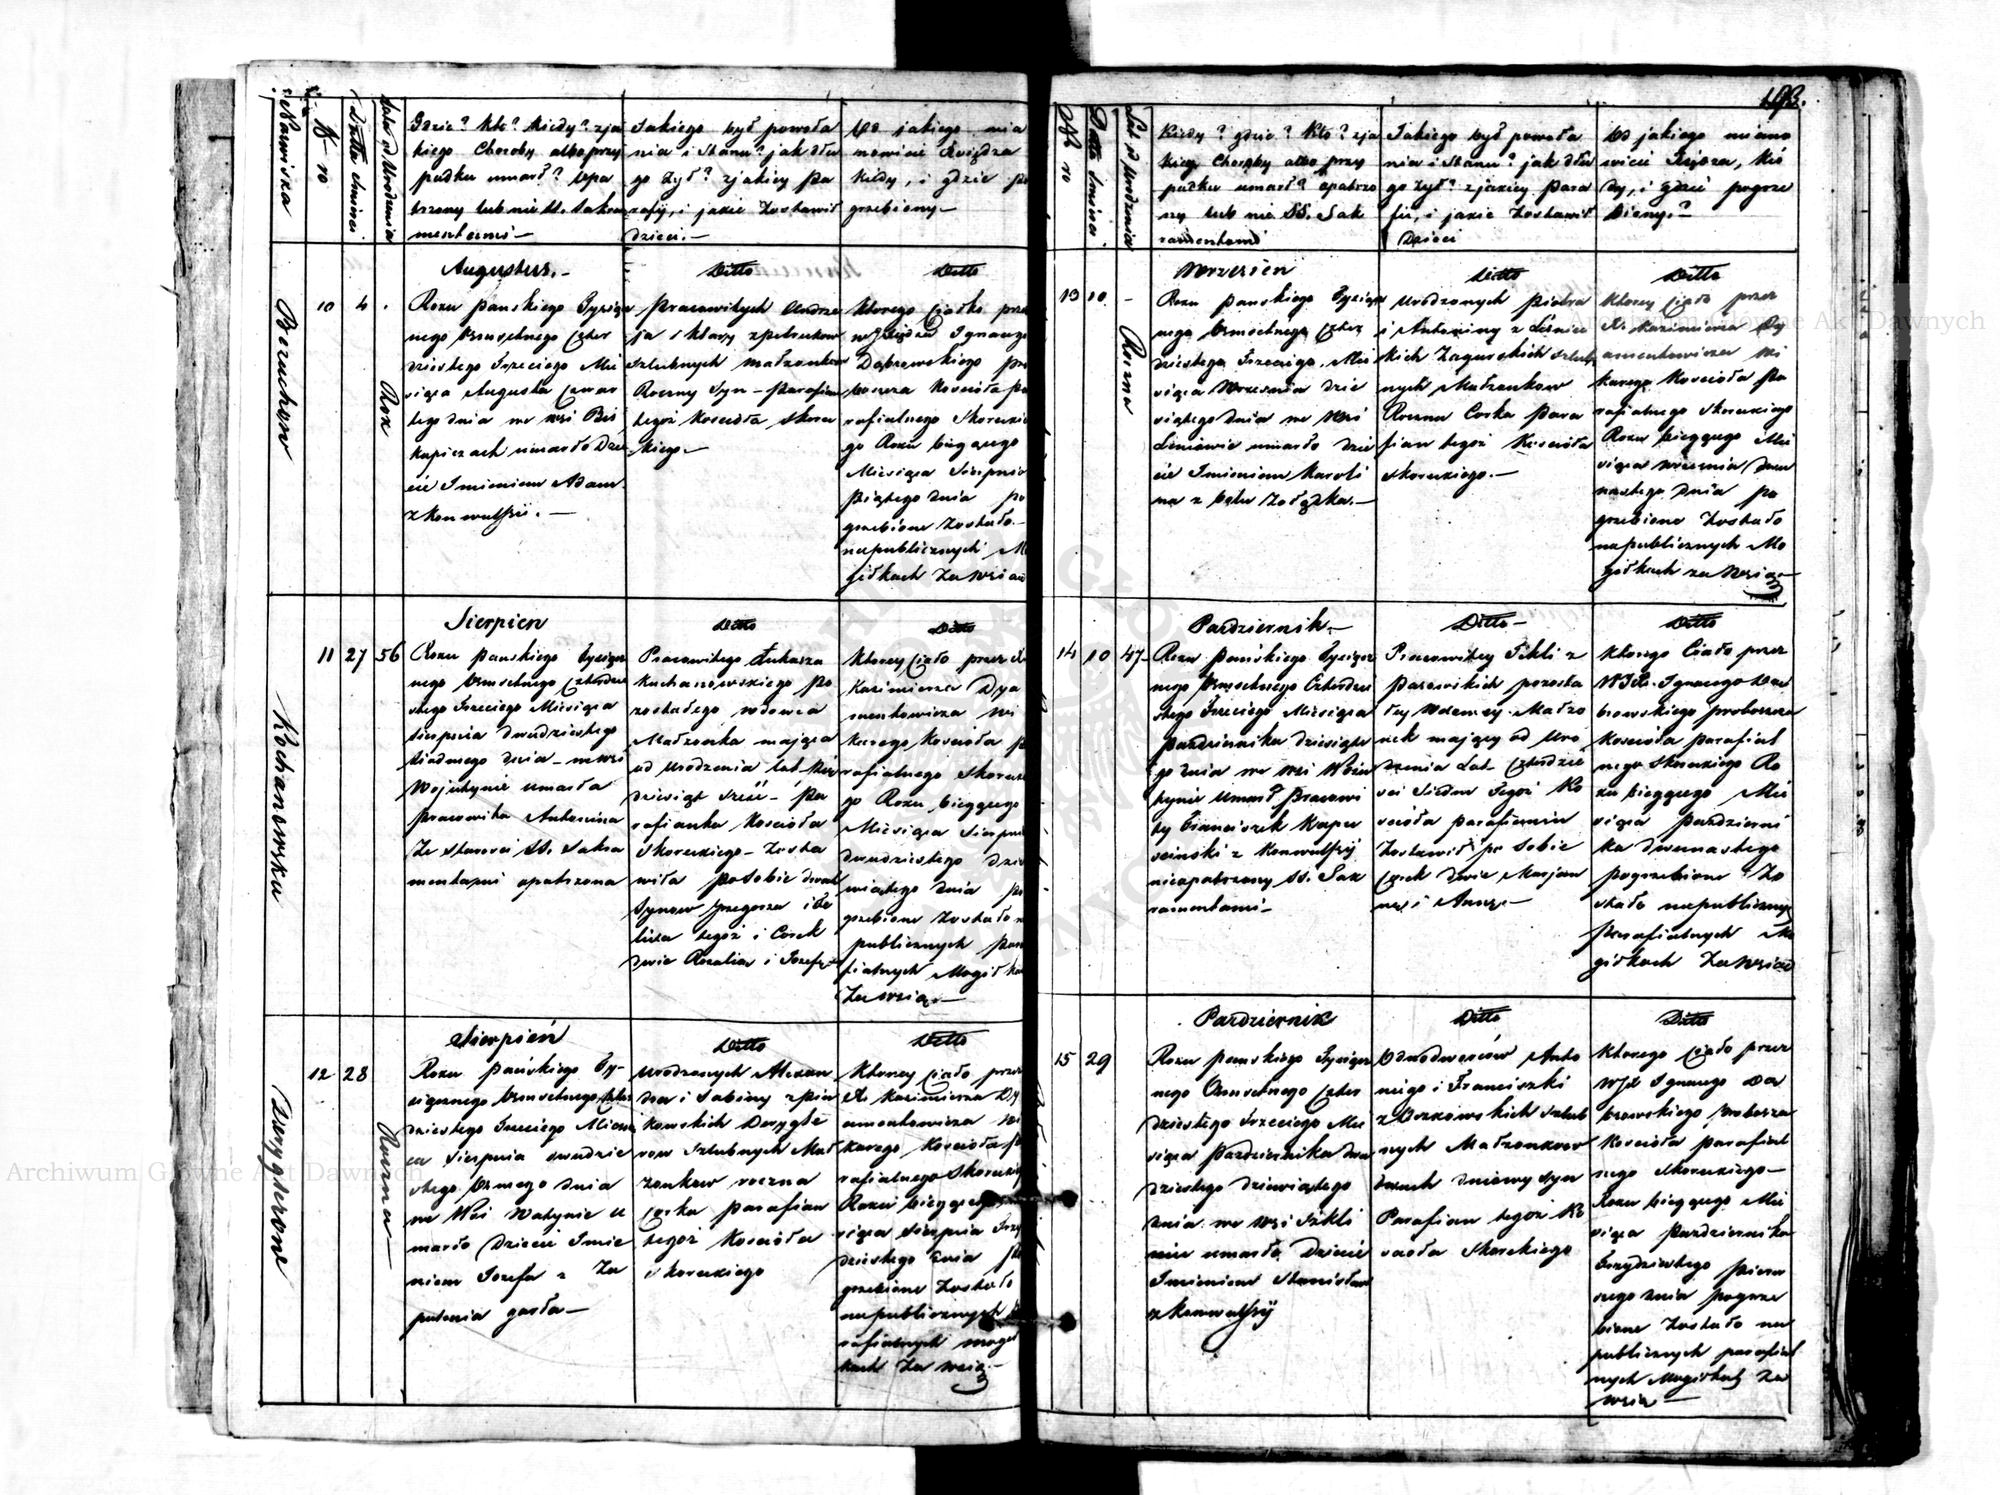 193.
Nazwiska
N-ro
Datta śmierci
Lata od Urodzenia
Gdzie? Kto? Kiedy? z ja
kiego Choroby albo przy
padku umarł? Opa
trzony lub nie SS. Sakra
mentami —
Jakiego był powoła
nia i Stanu? jak dłu
go żył? z jakiey Pa
rafij, i jakie zostawił
dzieci. —
Od jakiego mia
nowicie Xsiędza
Kiedy, i gdzie po
grzebiony —
Augustus. —
Ditto
Ditto
10
4
Rok
Roku Panskiego Tysiącz
nego Osmsetnego Czter
dziestego Trzeciego Mie
siąca Augusta Czwar
tego dnia we wsi
umarło Dzie
cie Imieniem Adam
z Konwulsii. —
Pracowitych Andrze
ja i Klary
Szlubnych Małżonkow
Roczny Syn — Parafian
tegoż Kościoła Skorec
kiego —
Ktorego Ciałko przez
W Xiędza Ignacego
Dąbrowskiego Pro
boszcza Kościoła Pa
rafialnego Skoreckie
go Roku biegącego
Miesiąca Sierpnia
Piątego dnia po
grzebione zostało —
na publicznych Mo
giłkach za wsią
Kochanowska
Sierpien
Ditto
Ditto
11
27
56
Roku Panskiego Tysiącz
nego Osmsetnego Czterdzie
stego Trzeciego Miesiąca
Sierpnia dwudziestego
siódmego dnia — we wsi
Wojutynie umarła
Pracowita Antonina
Ze starosci SS. Sakra
mentami opatrzona
Pracowitego Łukasza
Kochanowskiego Po
zostałego wdowca
Małżonka mająca
od Urodzenia lat Pięć
dziesiąt sześć — Pa
rafianka Kościoła
Skoreckiego — Zosta
wiła po Sobie dwoch
Synow Grzegorza i
tegoż i Corek
dwie Rozalia i Jozefę
Ktorey Ciało przez X.
Kazimierza Dya
mentowicza Wi
karego Kościoła Pa
rafialnego Skoreckie
go Roku biegącego
Miesiąca Sierpnia
dwudziestego dzie
wiątego dnia po
grzebione zostało na
publicznych Para
fialnych Mogiłkach
Za wsią. —
Sierpień
Ditto
Ditto
12
28
Roczna —
Roku Pańskiego Ty-
siącznego Osmsetnego Czter
dziestego Trzeciego Miesią
ca Sierpnia dwudzie
stego Osmego dnia
we Wsi Watynie u
marło Dziecie Imie
niem Jozefa z Za
palenia gardła —
Urodzonych Alexan
dra i Sabiny z Pień
kowskich
Szlubnych Mał
żonkow roczna
Corka Parafian
tegoż Kościoła
Skoreckiego
Ktorey Ciało przez
X. Kazimierza Dy
amentowicza Wi
karego Kościoła Pa
rafialnego Skoreckiego
Roku biegącego Mie
siąca Sierpnia Trzy
dziestego dnia po
grzebione zostało
na publicznych Pa
rafialnych mogił
kach Za wsią. —
N ro
Datta śmierci
Lat od Urodzenia
Kiedy? gdzie? Kto? z ja
kiey Choroby albo przy
padku umarł? opatrzo
ny lub nie SS. Sak
ramentami
Jakiego był powoła
nia i stanu? jak dłu
go żył? z jakiey Para
fii, i jakie zostawił
Dzieci
Od jakiego miano
wicie Xsiędza, Kie
dy, i gdzie pogrze
biony?
Wrzesien
Ditto
Ditto
13
10
Roczna
Roku Panskiego Tysiącz
nego Osmsetnego Czter
dziestego Trzeciego Mie
siąca Wrzesnia Dzie
siątego dnia we Wsi
Leniowie umarło Dzie
cie Imieniem Karoli
na z bolu Żołądka. —
Urodzonych Piotra
i Antoniny z
Zagurskich Szlub
nych Małżonkow
Roczna Corka Para
fian tegoż Kościoła
Skoreckiego. —
Ktorey Ciało przez
X. Kazimierza Dy
amentowicza Wi
karego Kościoła Pa
rafialnego Skoreckiego
Roku biegącego Mie
siąca Wrzesnia Dwu
nastego dnia po
grzebione zostało
na publicznych Mo
giłkach za Wsią —
Pazdziernik —
Ditto —
Ditto
14
10
47
Roku Pańskiego Tysiącz
nego Osmsetnego Czterdzie
stego Trzeciego Miesiąca
Pazdziernika dziesiąte
go dnia we wsi Woiu
tynie Umarł Pracowi
ty Franciszek
z Konwulsyi
nieopatrzony SS. Sak
ramentami —
Pracowitey Tekli z
pozosta
łey Wdowy Małżo
nek mający od Uro
dzenia Lat Czterdzie
sci Siedm Tegoż Ko
scioła Parafianin
Zostawił po Sobie
Corek dwie Marjan
nę i Annę —
Ktorego Ciało przez
W JX. Ignacego Dą
browskiego proboszcza
Kościoła Parafial
nego Skoreckiego Ro
ku biegącego Mie
siąca Pazdzierni
ka dwunastego
pogrzebione Zo
stało na publicznych
Parafialnych Mo
giłkach Za Wsią
Pazdziernik
Ditto
Ditto
15
29
Roku Panskiego Tysiącz
nego Osmsetnego Czter
dziestego Trzeciego Mie
siąca Pazdziernika dwu
dziestego dziewiątego
dnia we wsi
umarło Dziecie
Imieniem Stanisław
z Konwulsyi
Odnodworców Anto
niego i Franciszki
Szlub
nych Małżonkow
dwoch dniowy Syn
Parafian tegoż Ko
scioła Skoreckiego
Ktorego Ciało przez
W JX Ignacego Dą
browskiego Proboszcza
Kościoła Parafial
nego Skoreckiego —
Roku biegącego Mie
siąca Pazdziernika
Trzydziestego pierw
szego dnia pogrze
bione Zostało na
publicznych parafial
nych Mogiłkach Za
Wsią —
Archiwum Główne Akt Dawnych
Archiwum Główne Akt Dawnych